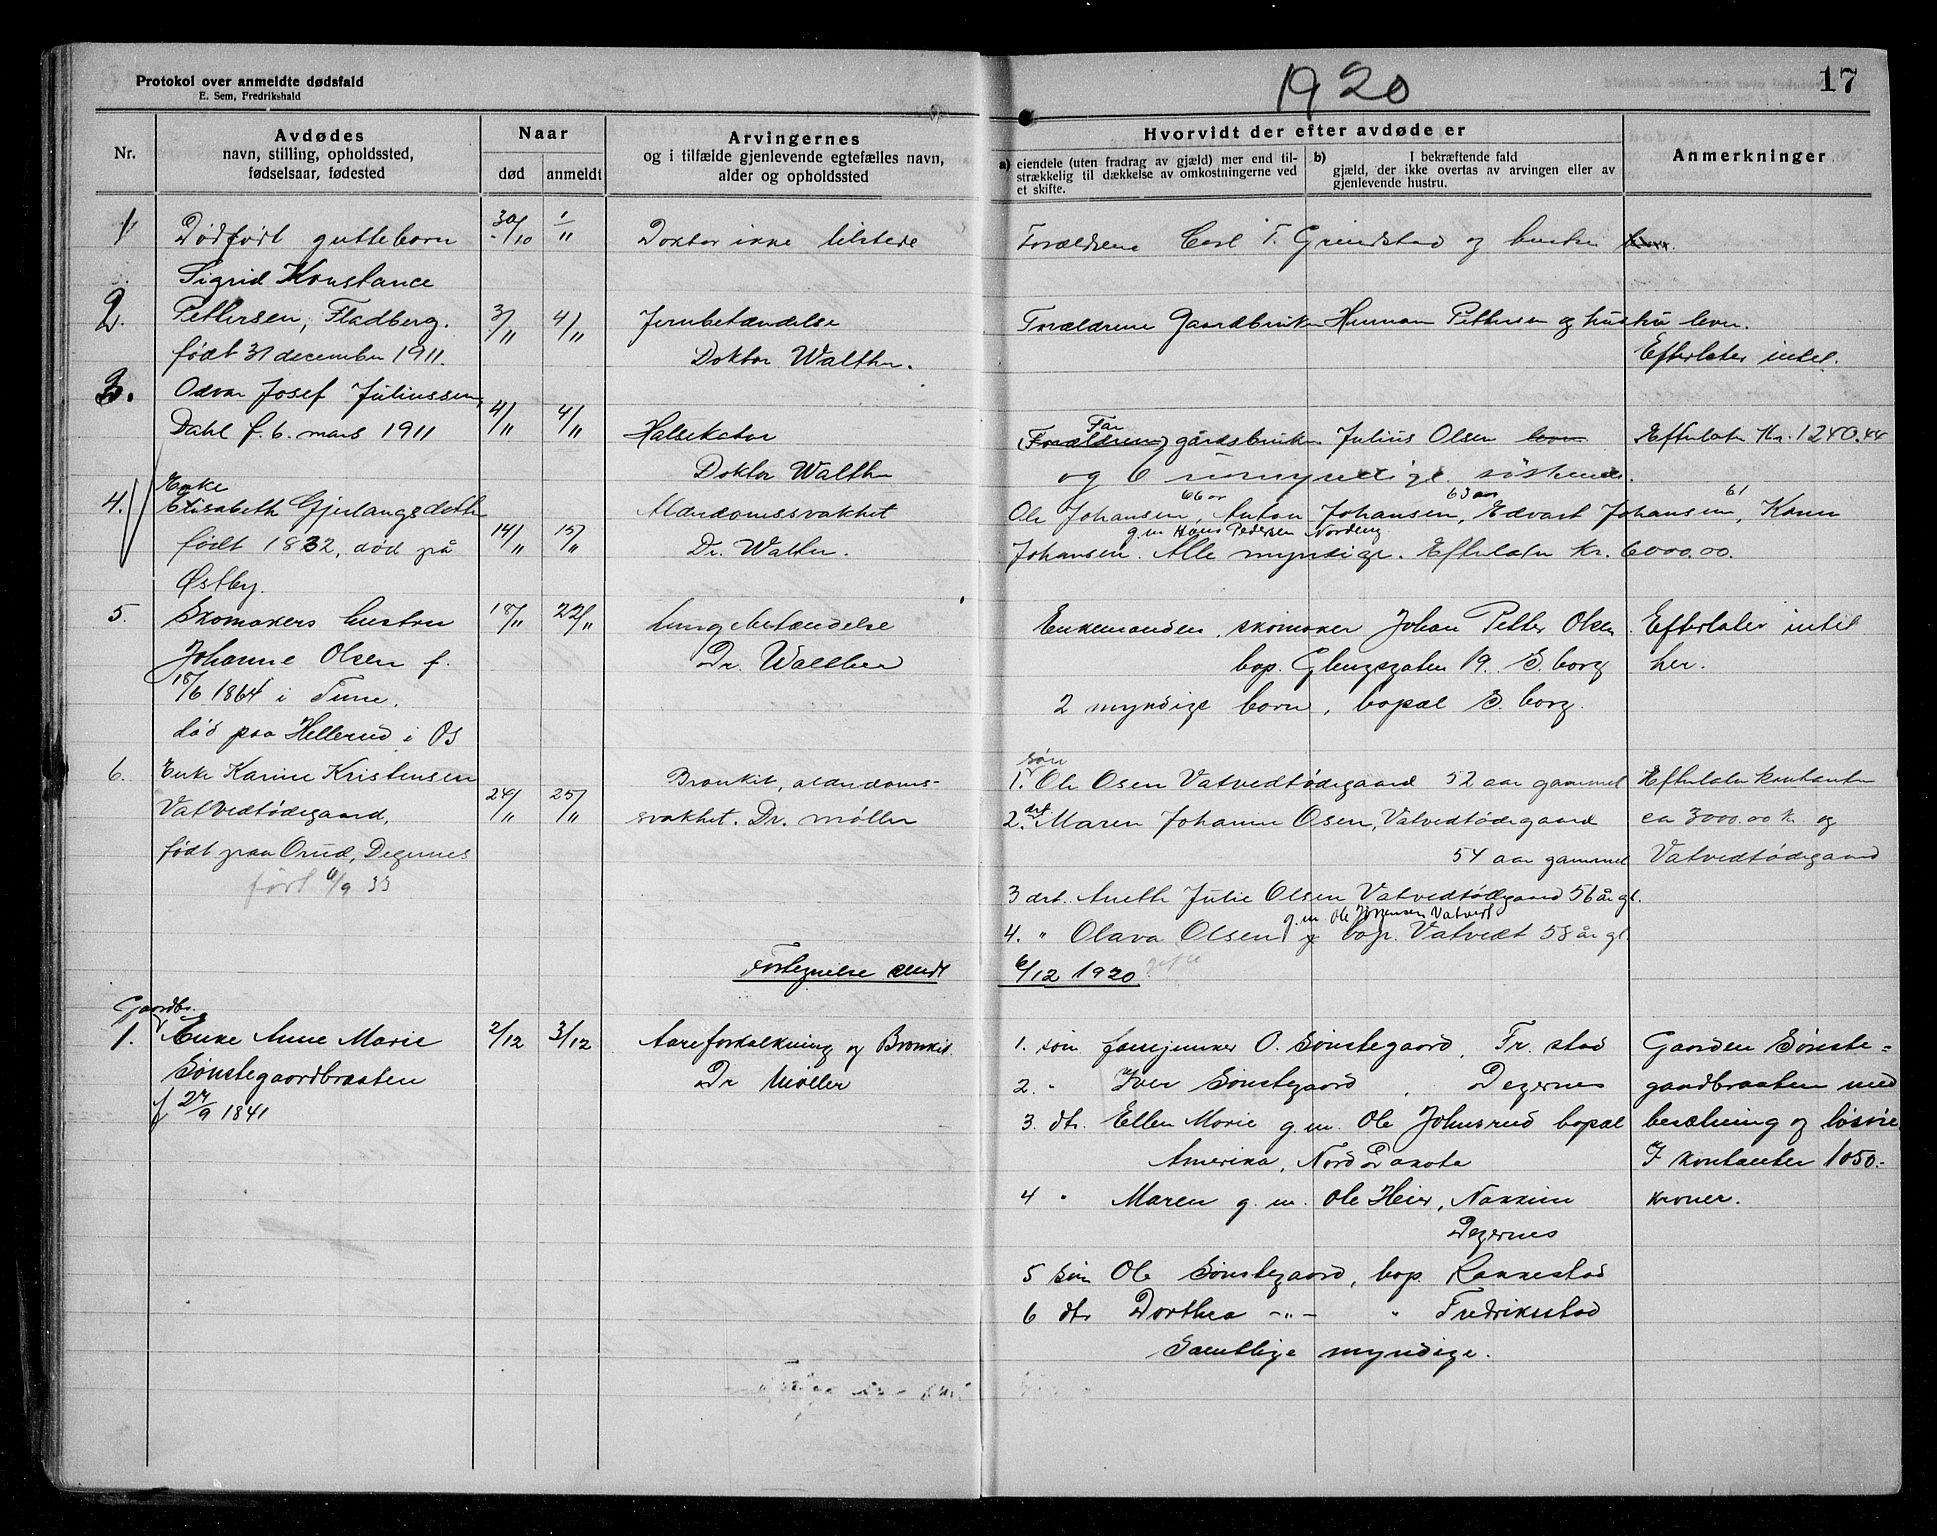 Protokol over anmeldte dødsfald
E. Sem, Fredrikshald
1920
17
Nr.
Avdødes
navn, stilling, opholdssted,
fødselsaar, fødested
Naar
død
anmeldt
Arvingernes
og i tilfælde gjenlevende egtefælles navn,
alder og opholdssted
Hvorvidt der efter avdøde er
a) eiendele (uten fradrag av gjæld) mer end til-
strækkelig til dækkelse av omkostningerne ved
et skifte.
b) I bekræftende fald
gjæld, der ikke overtas av arvingen eller av
gjenlevende hustru.
Anmerkninger
1 Dødfødt guttebarn 30/10 1/11 Doktor ikke tilstede Forældrene Carl T. Grimstad og hustru lever.
Sigrid Konstance
2. Pettersen, Fladberg. 3/11 4/11 Jernbetændelse Forældrene Gaardbruker Herman Pettersen og hustru lever.
født 31 december 1911. Doktor Walther. Efterlater intet.
3. Odvar Josef Juliussen,
Dahl f. 6. mars 1911 4/11 4/11 Halsekatar Far (Forældrene) gårdsbruker Julius Olsen lever Efterlater Kr. 1240.44
Doktor Walther og 6 umyndige søskende.
4. Enke
Elisabeth Gjerlangsdatter Alderdomssvakhet Ole Johansen, 66 aar Anton Johansen, 63 aar Edvart Johansen, 61 Karen
født 1832, død på 14/11 15/11 Dr. Walther. Johansen. g.m Hans Pedersen Nordeng Alle myndige. Efterlater Kr. 6000.00.
Østby.
5. Skomakers hustru 18/11 22/11 Lungebetændelse Enkemanden, skomaker Johan Petter Olsen Efterlater intet
Johanne Olsen f. Dr. Walther bop. Glengsgaten 19. S.borg her.
18/6 1864 i Tune. 2 myndige born, bopæl S.borg.
død paa Hellerud i Os
6. Enke Karine Kristensen Bronkit, alderdoms- 1. søn Ole Osen Vatvedtødegaard 52 aar gammel Efterlater kontanter
Vatvedtødegaard, 24/11 25/11 svakhet. Dr. Møller 2. dat. Maren Johanne Osen, Vatvedtødegaard ca 3000.00 kr og
født paa Orud, Degernes 54 aar gammel Vatvedtødegaard
ført 6/9 33
3 dat. Aneth Julie Olsen Vatvedtødegaard 56 år gl.
g.m Ole Jørgensen Vatvedt
4. " Olava Olsen bop. Vatvedt 58 år gl.
Fortegnelse sendt 6/12 1920.
Gaardbr.
1. Enke Anne Marie 2/12 3/12 Aareforkalkning og Bronkit. 1. søn O. Sønstegaard, Fr.stad Gaarden Sønste-
Sønstegaardbraaten Dr Møller 2. " Iver Sønstegaard, Degernes gaardbraaten med
f 27/9 1841 3. dtr Ellen Marie g.m. Ole Johnsrud bopæl besætning og løsøre.
Amerika, Nord Dakota I kontanter 1050.-
4 " Maren g.m. Ole Heier, Nakkim kroner.
Degernes
5 søn Ole Sønstegaard, bop. Rakkestad
6 dtr Dorthea -"- " Fredrikstad
Samtlige myndige.